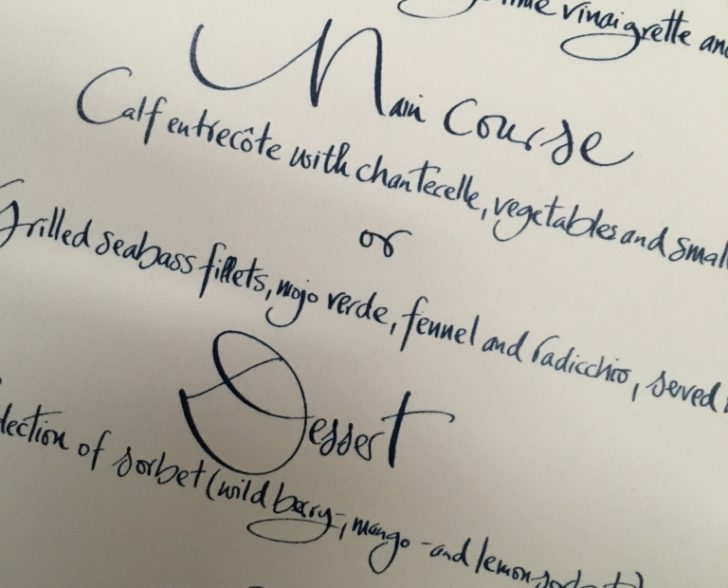 vinaigrette and
Main Course
Calf entrecôte with chantecelle, vegetables and small
or
Grilled seabass fillets, mojo verde, fennel and radicchio, served
Dessert
lection of sorbet (wild berry-, mango -and lemonsorbet)